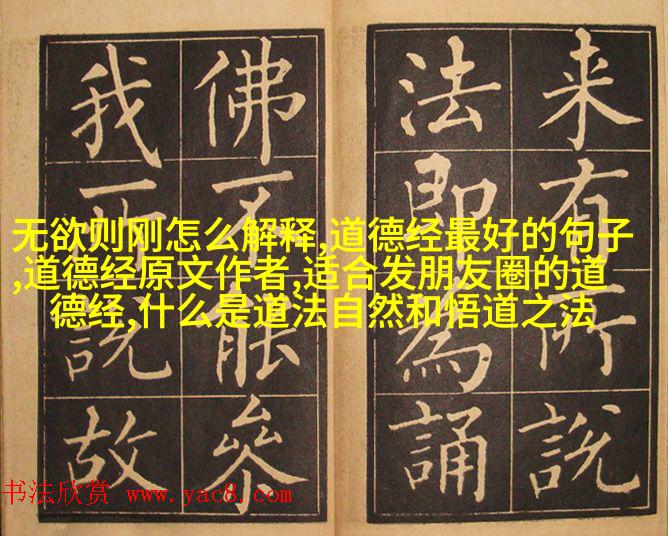 来有所說
法即為誦
佛不能叅
我所說故
无欲则刚怎么解释,道德经最好的句子
,道德经原文作者,适合发朋友圈的道
德经,什么是道法自然和悟道之法
书法欣赏 www.yac8.com